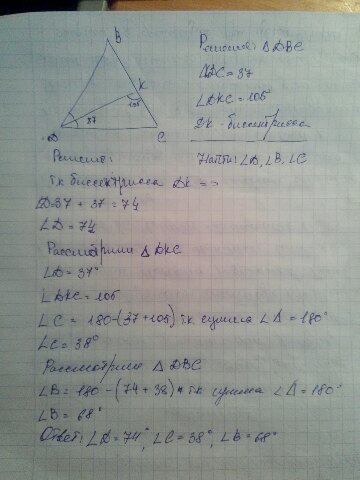 B
K
105
37
D
C
Решение: △DBC
∠DC = 37
∠DKC = 105
DK - биссектрисса
Найти: ∠D, ∠B, ∠C
Решение:
т.к биссектрисса DK =>
∠D=37 + 37 = 74
∠D = 74
Рассмотрим △ DKC
∠D = 37°
∠DKC = 105
∠C = 180-(37+105) т.к сумма ∠△ = 180°
∠C = 38°
Рассмотрим △ DBC
∠B = 180 - (74 + 38) т.к сумма ∠△ = 180°
∠B = 68°
Ответ: ∠D = 74°, ∠C = 38°, ∠B = 68°